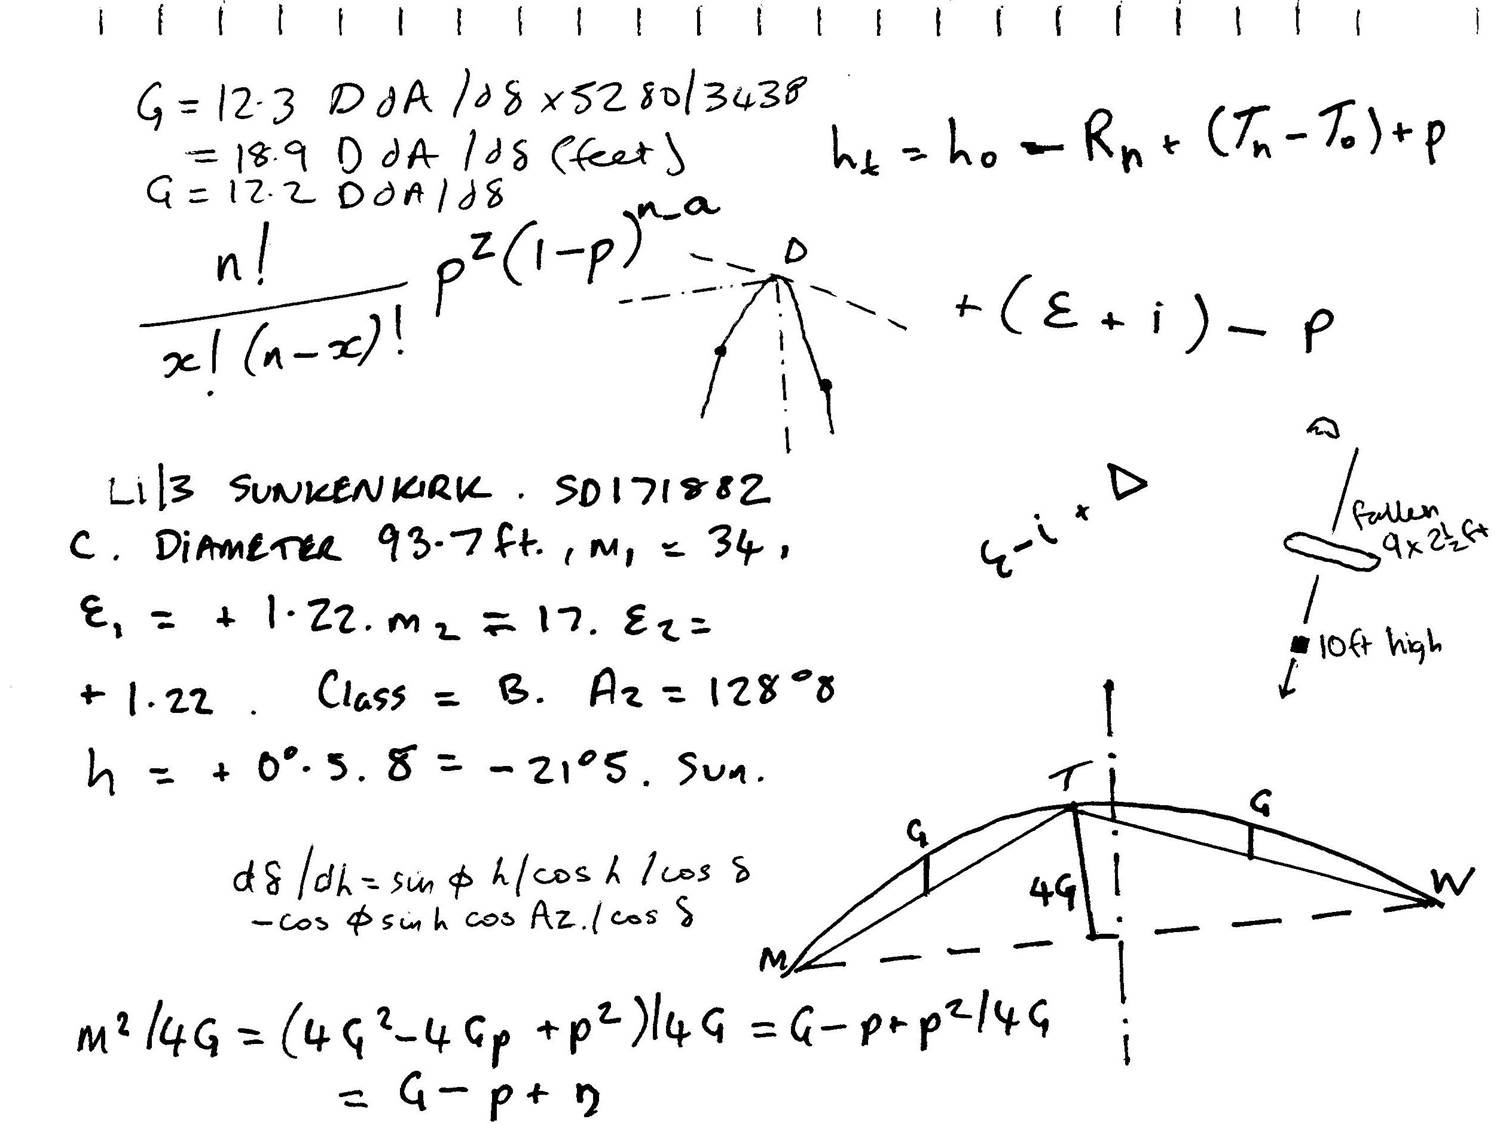 G = 12.3 D dA / dδ × 5280/3438
= 18.9 D dA / dδ (feet)
G = 12.2 D dA / dδ
h_t = h_o − R_n + (T_n − T_o) + p
n! / x! (n − x)! p^z (1 − p)^n−a
D
+ (ε + i) − p
Li/3 SUNKENKIRK. SD171882
C. DIAMETER 93.7 ft., m₁ = 34,
ε₁ = + 1.22. m₂ = 17. ε₂ =
+ 1.22. Class = B. Az = 128°8
h = + 0°.5. δ = −21°5. Sun.
ε − i + D
fallen
9 × 2½ ft
10ft high
dδ/dh = sin φ h/cos h/cos δ
− cos φ sin h cos Az./cos δ
T
G
G
4G
M
W
m²/4G = (4G² − 4Gp + p²)/4G = G − p + p²/4G
= G − p + η